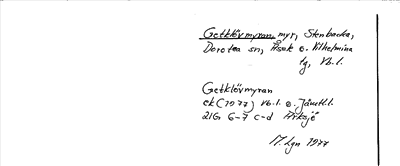 Getklövmyran, myr, Stenbacka,
Dorotea sn, Åsele o. Vilhelmina
tg, Vb.l.
Getklövmyran
ek (1977) Vb.l. o. Jämtl.l.
21G 6-7 c-d
M. Lgn 1977